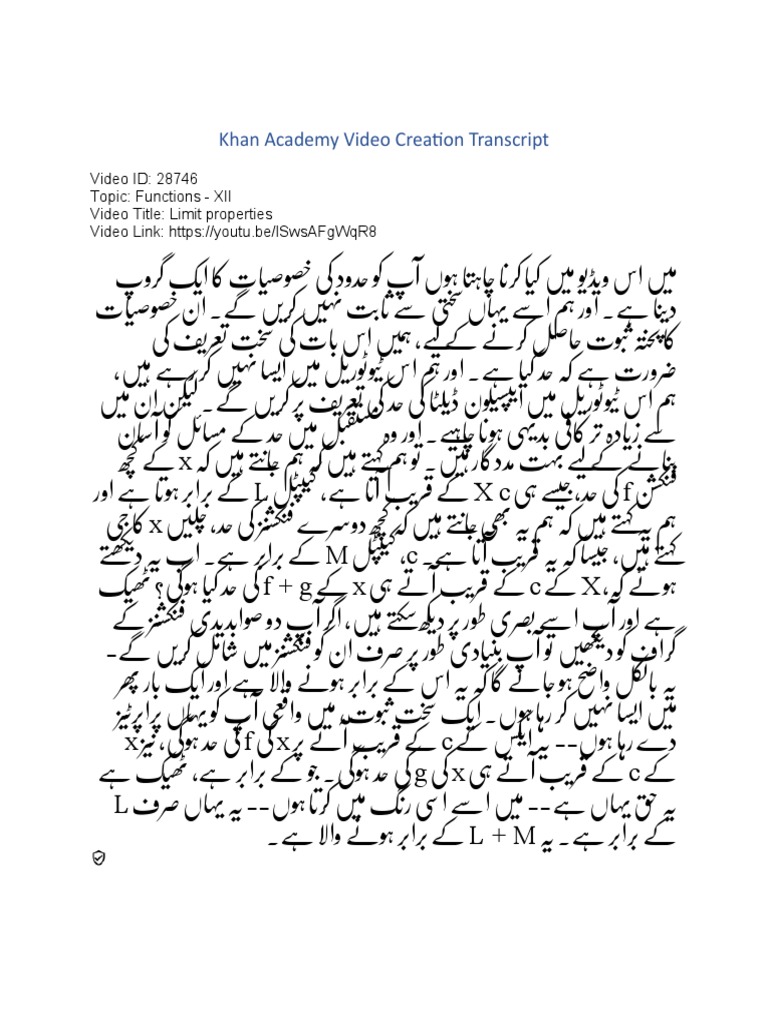 Khan Academy Video Creation Transcript
Video ID: 28746
Topic: Functions - XII
Video Title: Limit properties
Video Link: https://youtu.be/lSwsAFgWqR8
میں اس ویڈیو میں کیا کرنا چاہتا ہوں آپ کو حدود کی خصوصیات کا ایک گروپ
دینا ہے۔ اور ہم اسے یہاں سختی سے ثابت نہیں کریں گے۔ ان خصوصیات
کا پختہ ثبوت حاصل کرنے کے لیے، ہمیں اس بات کی سخت تعریف کی
ضرورت ہے کہ حد کیا ہے۔ اور ہم اس ٹیوٹوریل میں ایسا نہیں کر رہے ہیں،
ہم اس ٹیوٹوریل میں ایپسیلون ڈیلٹا کی حد کی تعریف پر کریں گے۔ لیکن ان میں
سے زیادہ تر کافی بدیہی ہونا چاہیے۔ اور وہ مستقبل میں حد کے مسائل کو آسان
بنانے کے لیے بہت مددگار ہیں۔ تو ہم کہتے ہیں کہ ہم جانتے ہیں کہ x کے کچھ
فنکشن f کی حد، جیسے ہی X c کے قریب آتا ہے، کیپٹل L کے برابر ہوتا ہے اور
ہم یہ کہتے ہیں کہ ہم یہ بھی جانتے ہیں کہ کچھ دوسرے فنکشنز کی حد، چلیں x کا جی
کہتے ہیں، جیسا کہ یہ قریب آتا ہے۔ c، کیپٹل M کے برابر ہے۔ اب یہ دیکھتے
ہوئے کہ، X کے c کے قریب آتے ہی x کے f + g کی حد کیا ہوگی؟ ٹھیک
ہے اور آپ اسے بصری طور پر دیکھ سکتے ہیں، اگر آپ دو صوابدیدی فنکشنز کے
گراف کو دیکھیں تو آپ بنیادی طور پر صرف ان کو فنکشنز میں شامل کریں گے۔
یہ بالکل واضح ہو جائے گا کہ یہ اس کے برابر ہونے والا ہے اور ایک بار پھر
میں ایسا نہیں کر رہا ہوں۔ ایک سخت ثبوت، میں واقعی آپ کو یہاں پراپرٹیز
دے رہا ہوں-- یہ ایکس کے c کے قریب آنے پر x کی f کی حد ہوگی، نیز x
کے c کے قریب آتے ہی x کی g کی حد ہوگی۔ جو کے برابر ہے، ٹھیک ہے
یہ حق یہاں ہے -- میں اسے اسی رنگ میں کرتا ہوں-- یہ یہاں صرف L
کے برابر ہے۔ یہ L + M کے برابر ہونے والا ہے۔